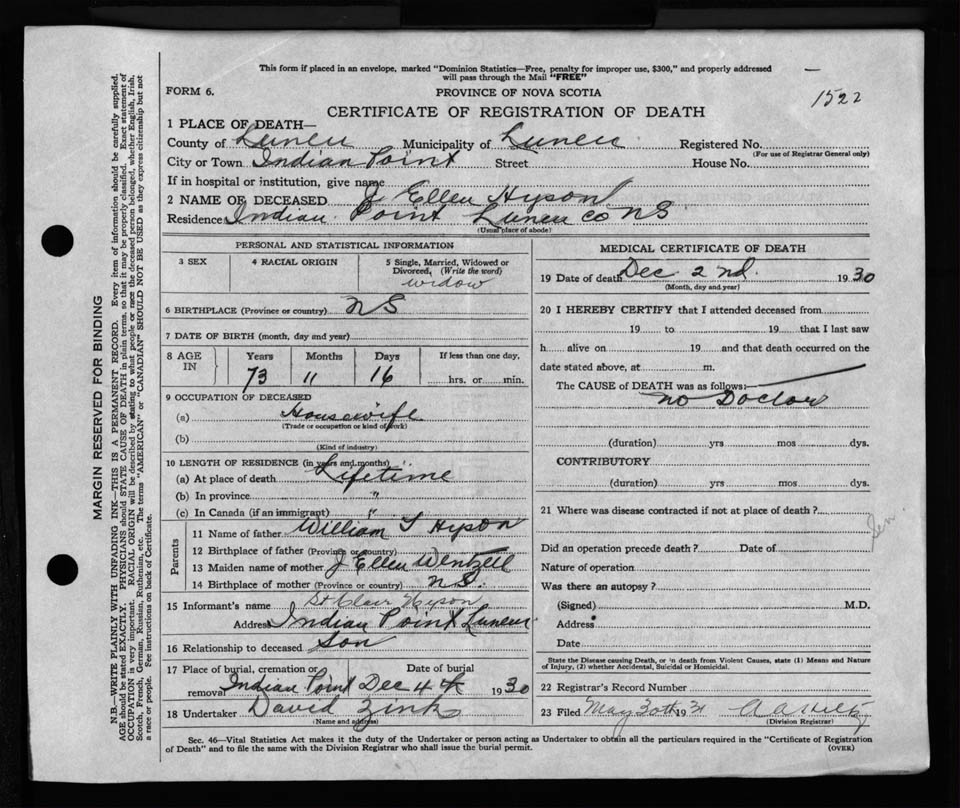 This form if placed in an envelope, marked "Dominion Statistics—Free, penalty for improper use, $300," and properly addressed
will pass through the Mail "FREE"
FORM 6.
PROVINCE OF NOVA SCOTIA
1522
CERTIFICATE OF REGISTRATION OF DEATH
1 PLACE OF DEATH—
County of Lunen Municipality of Lunen Registered No.
(For use of Registrar General only)
City or Town Indian Point Street House No.
If in hospital or institution, give name
2 NAME OF DECEASED J Ellen Hyson
Residence Indian Point Lunen Co NS
(Usual place of abode)
PERSONAL AND STATISTICAL INFORMATION
3 SEX
4 RACIAL ORIGIN
5 Single, Married, Widowed or
Divorced, (Write the word)
widow
6 BIRTHPLACE (Province or country) NS
7 DATE OF BIRTH (month, day and year)
8 AGE IN
Years Months Days If less than one day,
73 11 16 hrs. or min.
9 OCCUPATION OF DECEASED
(a) Housewife
(Trade or occupation or kind of work)
(b)
(Kind of industry)
10 LENGTH OF RESIDENCE (in years and months)
(a) At place of death Lifetime
(b) In province "
(c) In Canada (if an immigrant) "
Parents
11 Name of father William T Hyson
12 Birthplace of father (Province or country)
13 Maiden name of mother J Ellen Wentzell
14 Birthplace of mother (Province or country) N S.
15 Informant's name St Clair Hyson
Address Indian Point Lunen
16 Relationship to deceased Son
17 Place of burial, cremation or removal Indian Point Date of burial Dec 4th 1930
18 Undertaker David Zink
(Name and address)
MEDICAL CERTIFICATE OF DEATH
19 Date of death Dec 2nd. 1930
(Month, day and year)
20 I HEREBY CERTIFY that I attended deceased from
19 to 19 that I last saw
h alive on 19 and that death occurred on the
date stated above, at m.
The CAUSE of DEATH was as follows:
no Doctor
(duration) yrs mos dys.
CONTRIBUTORY
(duration) yrs mos dys.
21 Where was disease contracted if not at place of death?
Sen
Did an operation precede death? Date of
Nature of operation
Was there an autopsy?
(Signed) M.D.
Address
Date
State the Disease causing Death, or in death from Violent Causes, state (1) Means and Nature
of Injury, (2) whether Accidental, Suicidal or Homicidal.
22 Registrar's Record Number
23 Filed May 30th 1931 A A Hiltz
(Division Registrar)
Sec. 46—Vital Statistics Act makes it the duty of the Undertaker or person acting as Undertaker to obtain all the particulars required in the "Certificate of Registration
of Death" and to file the same with the Division Registrar who shall issue the burial permit.
(OVER)
MARGIN RESERVED FOR BINDING
N.B.—WRITE PLAINLY WITH UNFADING INK—THIS IS A PERMANENT RECORD. Every item of information should be carefully supplied.
AGE should be stated EXACTLY. PHYSICIANS should STATE CAUSE OF DEATH in plain terms, so that it may be properly classified. Exact statement of
OCCUPATION is very important. RACIAL ORIGIN will be described by stating to what people or race the deceased person belonged, whether English, Irish,
Scotch, French, German, Russian, Ruthenian, etc. The terms "AMERICAN" or "CANADIAN" SHOULD NOT BE USED as they express citizenship but not
a race or people. See instructions on back of Certificate.